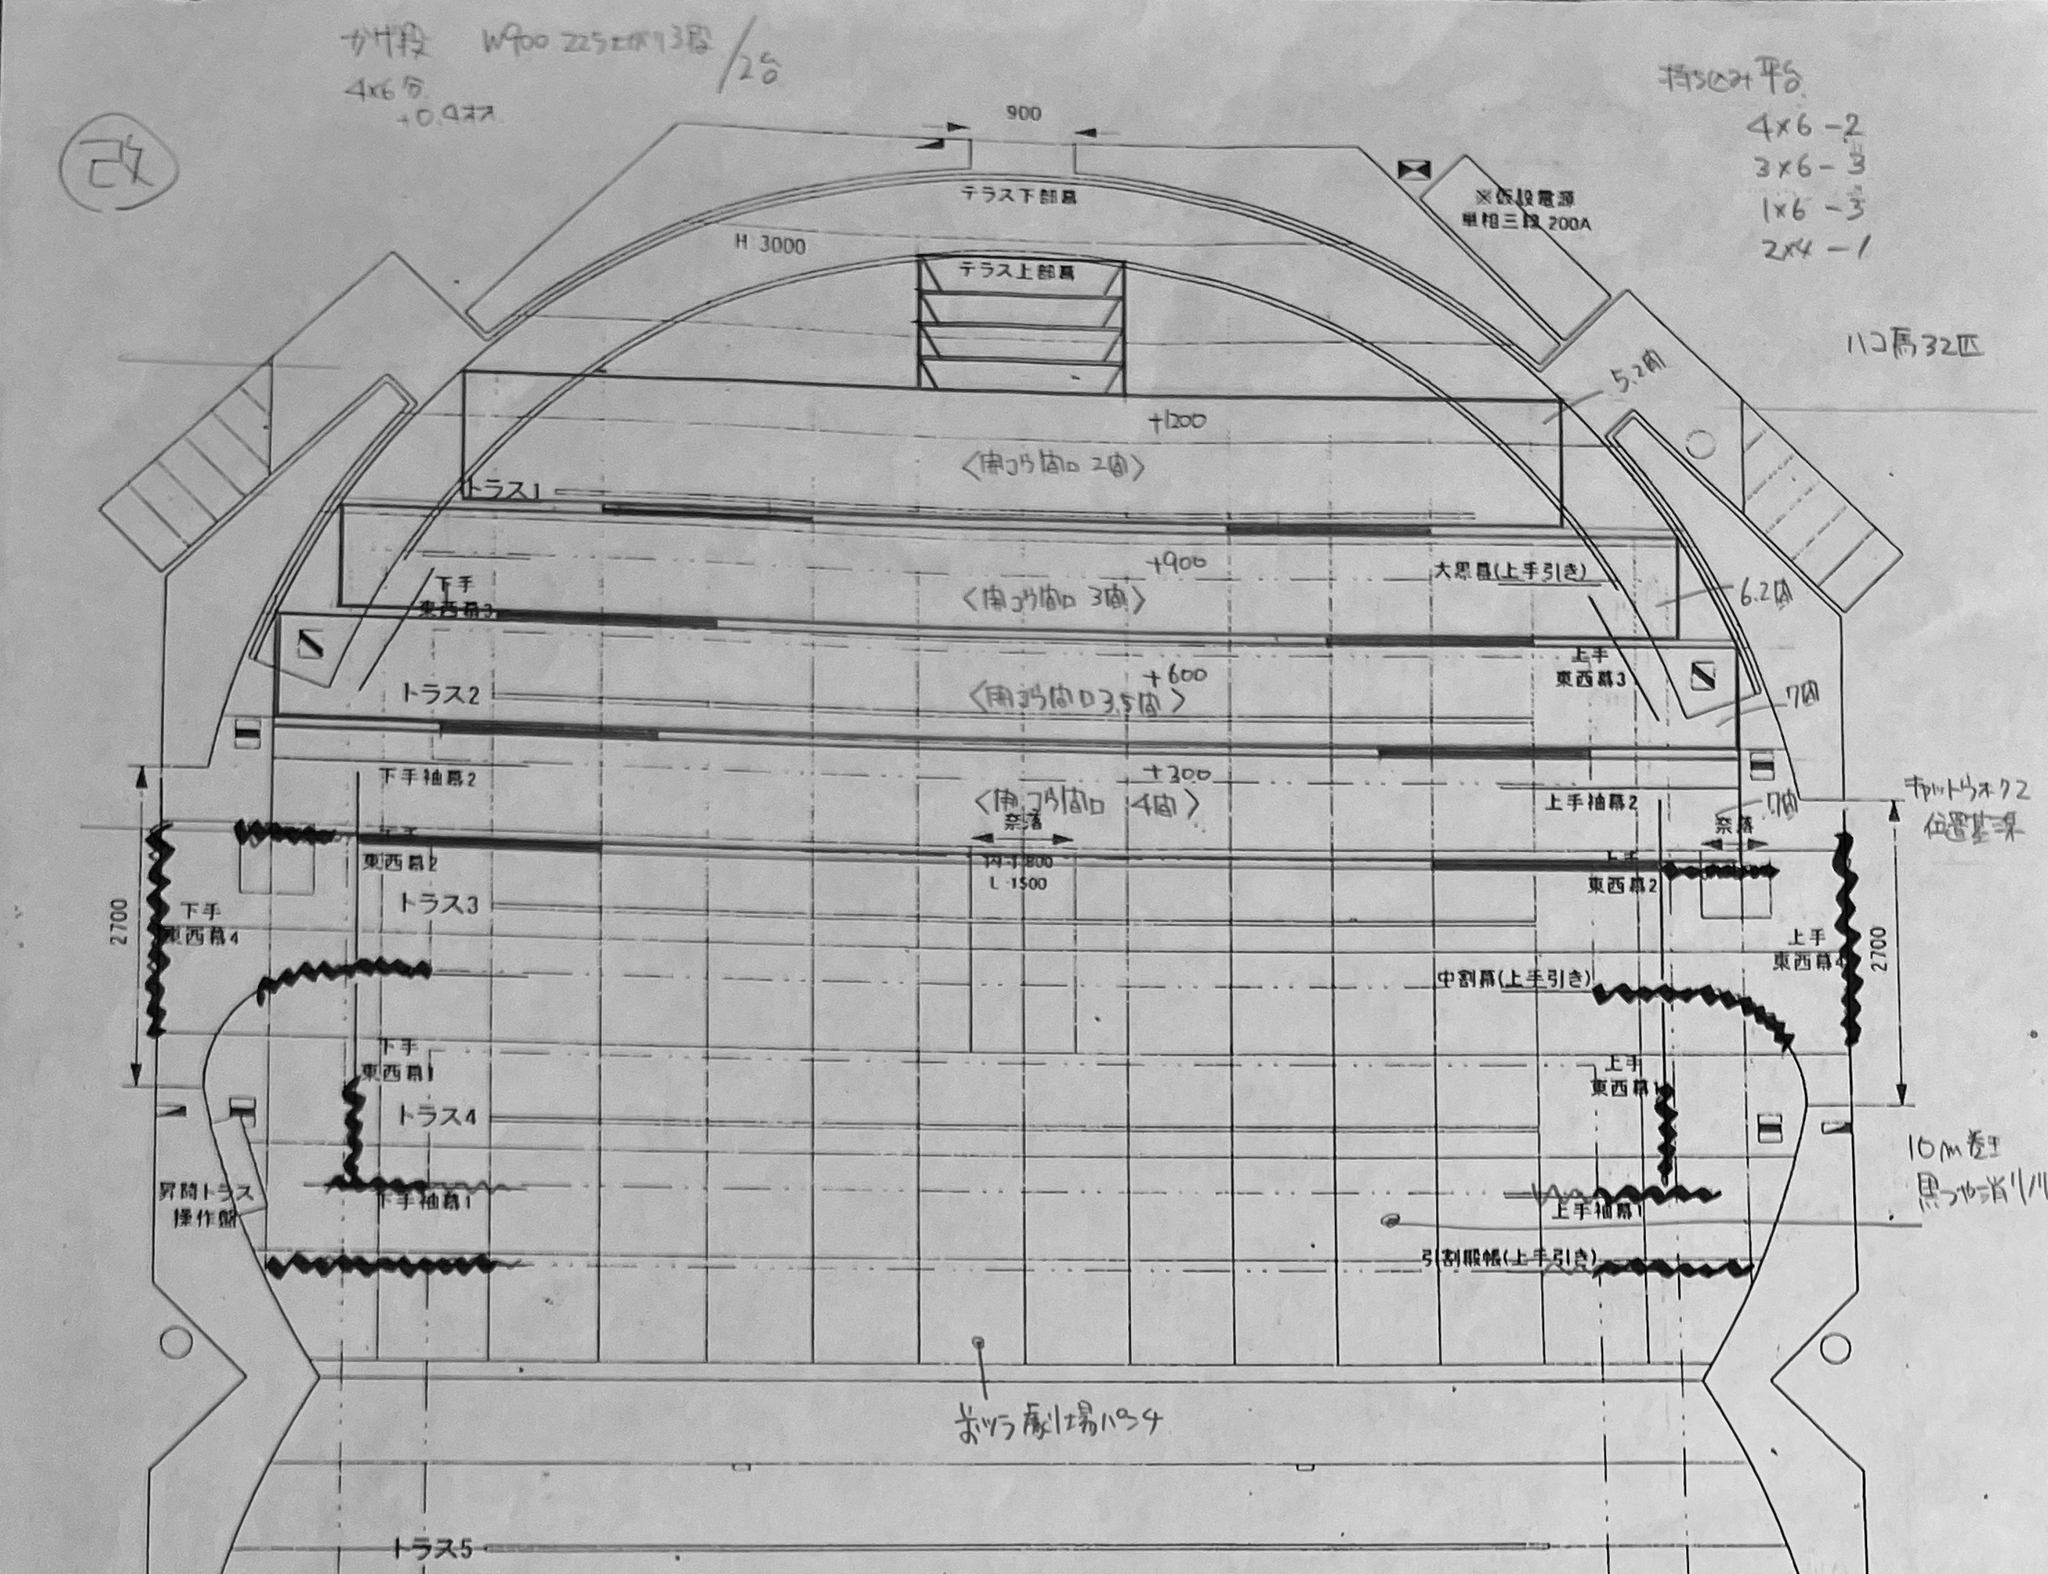 かげ段 W900 225上がり3段/2台
4×6分
改
900
持ち込み平台
4×6 -2
3×6 - 3
1×6 -3
2×4 -1
テラス下部幕
※仮設電源
単相三線 200A
H 3000
テラス上部幕
ハコ馬32匹
5.2間
+1200
<開コウ間口 2間>
トラス1
+900
大黒幕(上手引き)
下手
東西幕3
<開コウ間口 3間>
6.2間
上手
東西幕3
+600
トラス2
<開コウ間口3.5間>
7間
下手袖幕2
+300
上手袖幕2
<開コウ間口 4間>
7間
キャットウォーク2
位置基準
奈落
奈落
下手
東西幕2
上手
東西幕2
L 1500
トラス3
2700
下手
東西幕4
上手
東西幕4
2700
中割幕(上手引き)
下手
東西幕1
上手
東西幕1
トラス4
10m巻
黒つや消しリノ
昇降トラス
操作盤
下手袖幕1
上手袖幕1
引割緞帳(上手引き)
前ヅラ劇場パンチ
トラス5